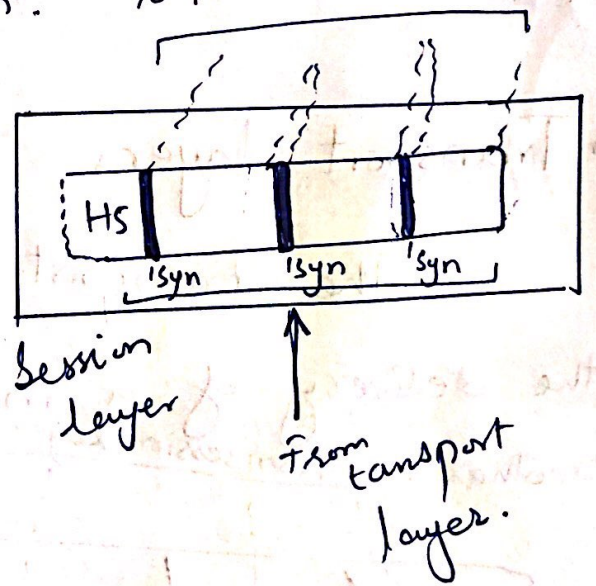 H5
'syn 'syn 'syn
Session
layer
From
tansport
layer.